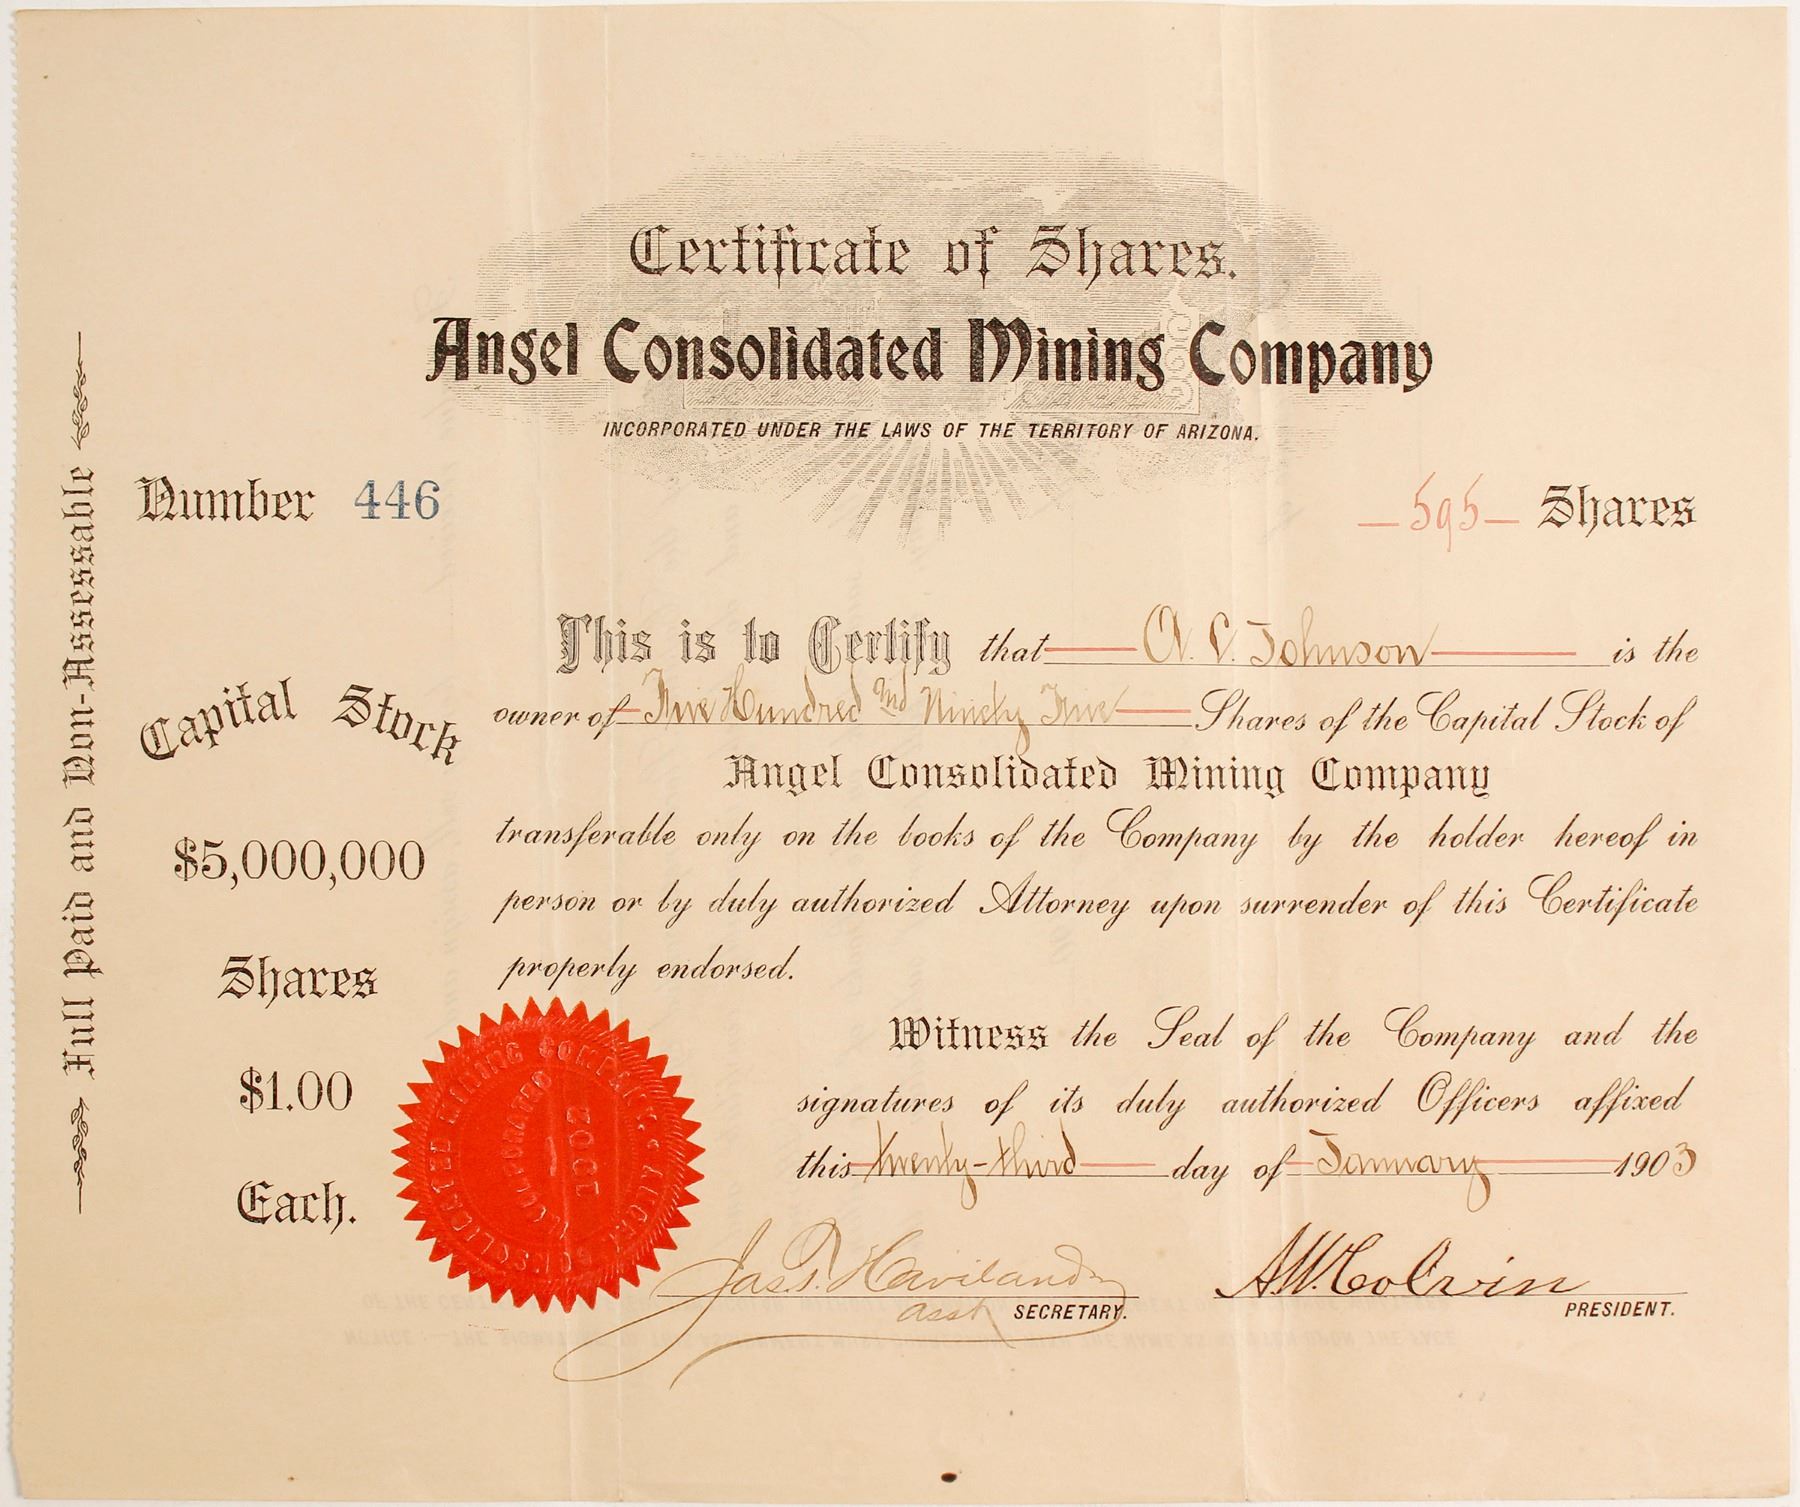 Certificate of Shares.
Angel Consolidated Mining Company
INCORPORATED UNDER THE LAWS OF THE TERRITORY OF ARIZONA.
Number 446
595 Shares
Full Paid and Non-Assessable
Capital Stock
$5,000,000
Shares
$1.00
Each.
This is to Certify that A. L. Johnson is the
owner of Five Hundred and Ninety Five Shares of the Capital Stock of
Angel Consolidated Mining Company
transferable only on the books of the Company by the holder hereof in
person or by duly authorized Attorney upon surrender of this Certificate
properly endorsed.
Witness the Seal of the Company and the
signatures of its duly authorized Officers affixed
this twenty-third day of January 1903
Jas. T. Haviland
asst SECRETARY.
A.W. Colvin
PRESIDENT.
ANGEL CONSOLIDATED MINING COMPANY
INCORPORATED